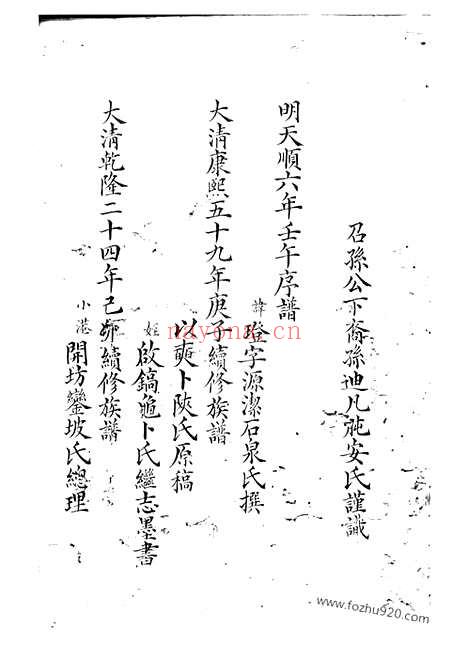 召孫公下裔孫迪凡菴安氏謹識
明天順六年壬午序譜
諱 字源潔石泉氏撰
大清康熙五十九年庚子續修族譜
以奭卜陝氏原稿
姪 啟鎬龜卜氏繼志墨書
大清乾隆二十四年己卯續修族譜
小港 開坊鑾坡氏總理
nayona.cn
www.fozhu920.com